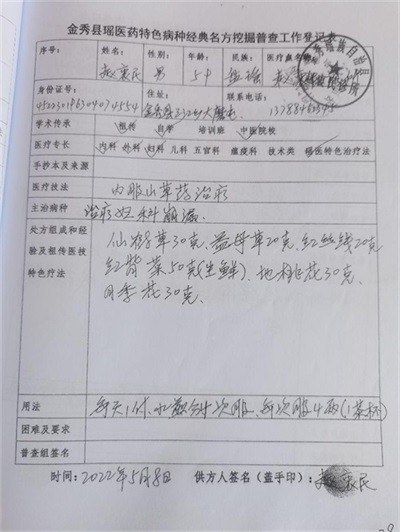 金秀县瑶医药特色病种经典名方挖掘普查工作登记表
序号: 姓名: 性别: 年龄: 民族: 医疗
赵 民 男 59
身份证号: 住址: 联系电话:
金秀县
学术传承 祖传 自学 培训班 中医院校
医疗专长 内科 外科 妇科 儿科 五官科 瘟疫科 技术类 瑶医特色治疗法
手抄本及来源
医疗技法 内服山草药治疗
主治病种 治疗妇科崩漏.
处方组成和经验及祖传医技特色疗法
仙鹤草30克、益母草20克、红丝线20克
红背菜50克(生鲜)、地桃花30克
月季花30克、
用法 每天1付、水煎分 次服、每次服4两(1茶杯)
困难及要求
普查组签名
时间:2022年5月8日 供方人签名(盖手印): 民